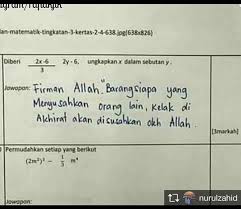 lan-matematik-tingkatan-3-kertas-2-4-638.jpg(638x826)
Diberi 2x-6 / 3 2y - 6, ungkapkan x dalam sebutan y.
Jawapan: Firman Allah, Barangsiapa yang
Menyusahkan orang lain, kelak di
Akhirat akan disusahkan oleh Allah.
[3markah]
) Permudahkan setiap yang berikut
(2m²)³ - 1/3 m⁴
Jawapan:
nurulzahid